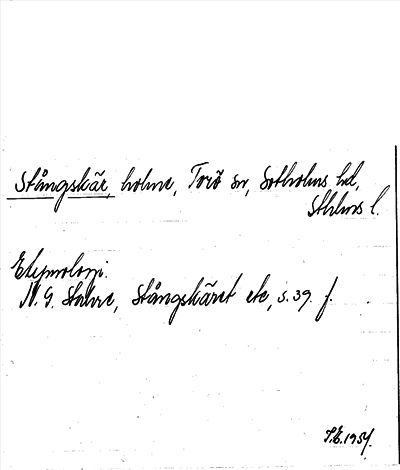 Stångskär, holme, Torö sn, Sotholms hd,
Sthlms l.
Etymologi.
N. G. Stahre, Stångskäret etc, s. 39 f.
S.E. 1954.